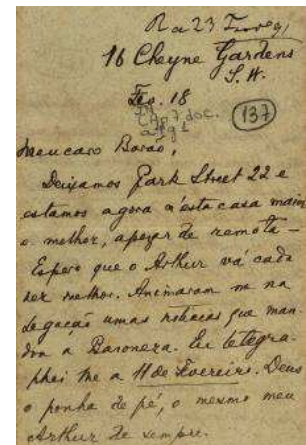 R a 23 Fever 91
16 Cheyne Gardens
S. W.
Feb. 18
137
Meu caro Barão,
Deixamos Park Street 22 e
estamos agora n'esta casa maior
e melhor, apezar de remota –
Espero que o Arthur vá cada
vez melhor. Animaram-me na
Legação umas noticias que man-
dou a Baroneza. Eu telegra-
phei-lhe a 11 de Fevereiro. Deus
o ponha de pé, o mesmo meu
Arthur de sempre.